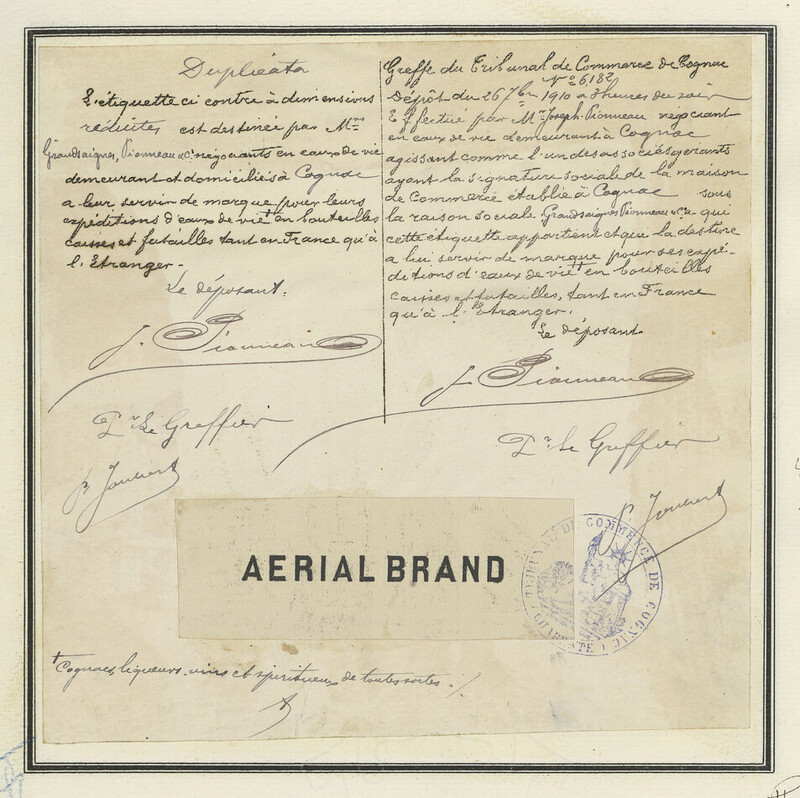 Duplicata
L'étiquette ci contre à dimensions
réduites est destinée par Mrs
Grandsaignes, Pionneau & Cie négociants en eaux de vie
demeurant et domiciliés à Cognac
a leur servir de marque pour leurs
expéditions d'eaux de vie + en bouteilles
caisses et futailles tant en France qu'à
l'Etranger.
Le déposant.
J. Pionneau
Pr Le Greffier
P. Joubert
Greffe du Tribunal de Commerce de Cognac
No 6182
Dépôt du 26 7bre 1910 à 3 heures du soir
Effectué par Mr Joseph Pionneau négociant
en eaux de vie demeurant à Cognac
agissant comme l'un des associés gérants
ayant la signature sociale de la maison
de Commerce établie à Cognac sous
la raison sociale Grandsaignes Pionneau & Cie qui
cette étiquette appartient et que la destine
a lui servir de marque pour ses expé-
ditions d'eaux de vie + en bouteilles
caisses et futailles, tant en France
qu'à l'Etranger.
Le déposant.
J. Pionneau
Pr Le Greffier
P. Joubert
AERIAL BRAND
TRIBUNAL DE COMMERCE DE COGNAC
CHARENTE
+ Cognacs, liqueurs, vins et spiritueux de toutes sortes ./.